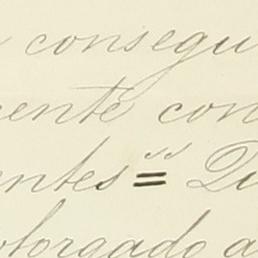 consegu
cente con
entes = Qu
otorgado a